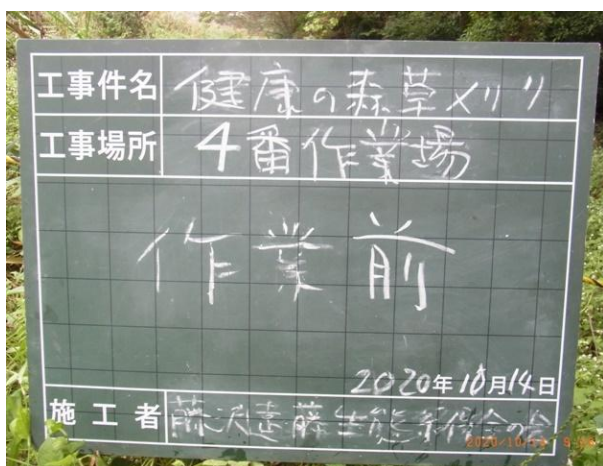 工事件名 健康の森草刈り
工事場所 4番作業場
作業前
2020年10月14日
施工者 藤沢遠藤生態系保全の会
2020/10/14